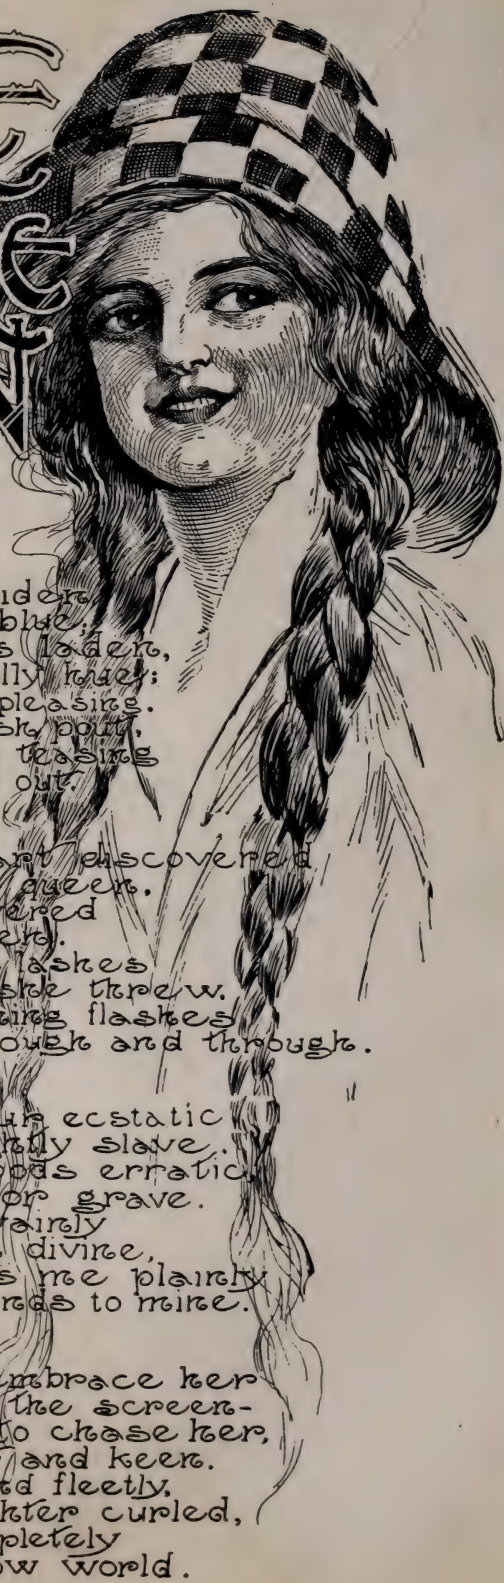 iden,
blue,
s laden,
lly hue;
pleasing.
sh pout,
teasing
out.
art discovered
queen,
ered
en).
lashes
she threw.
ning flashes
ough and through.
ur ecstatic
ntly slave.
oods erratic,
or grave.
vainly
divine,
s me plainly
nds to mine.
mbrace her
the screen-
to chase her,
and keen.
nd fleetly,
hter curled,
pletely
ow world.